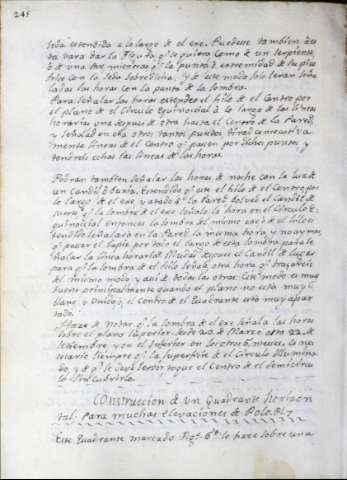 245
seda estendido a lo largo de el exe. Puedese tambien a es
ta vara dar la figura q.e se quiera como de un serpiente,
o de una
tiloe con la seda sobredicha; y de este modo solo seran seña
ladas las horas con la punta de la sombra.
Para señalar las horas extended el hilo de el Centro por
el plano de el Circulo Equinoccial a lo largo de las lineas
horarias una despues de otra hasta el Centro de la Pared,
y señalad en ella otros tantos puntos; tirad consecutiva
mente lineas de el Centro q.e pasen por dichos puntos, y
tendreis echas las lineas de las horas.
Podran tambien señalar las horas de noche con la luz de
un Candil, o buxia. Estendido q.e este el hilo de el Centro por
lo largo de el exe, y atado a la Pared bolved el Candil de
suerte q.e la sombra de el exe señale la hora en el Circulo E
quinoccial entonces la sombra del mismo exe o de el hilo es
tendido señalara en la Pared la misma hora, y no ay mas
q.e pasar el lapiz por todo el largo de esta sombra para se
ñalar la linea horaria. Mudad despues el Candil de lugar
para q.e la sombra de el hilo señale otra hora q.e trazareis
de el mismo modo, y assi de todas las otras. Este modo es muy
bueno principalmente quando el plano no esta muy
llano, y unido, o el Centro de el Quadrante esta muy apar
tado.
Hase de Notar q.e la sombra de el exe señala las horas
sobre el plano superior desde 20 de Marzo asta 22 de
Settiembre, y en el inferior en los otros 6 meses. Es ne
sesario siempre q.e la superficie de el Circulo este ilumina
do, y q.e se debe
lo para Cubrirla.
Construccion de un Quadrante horizon
tal. Para muchas elevaciones de Polo. Pl. 7
Este Quadrante marcado Fig. 6.ta se haze sobre una